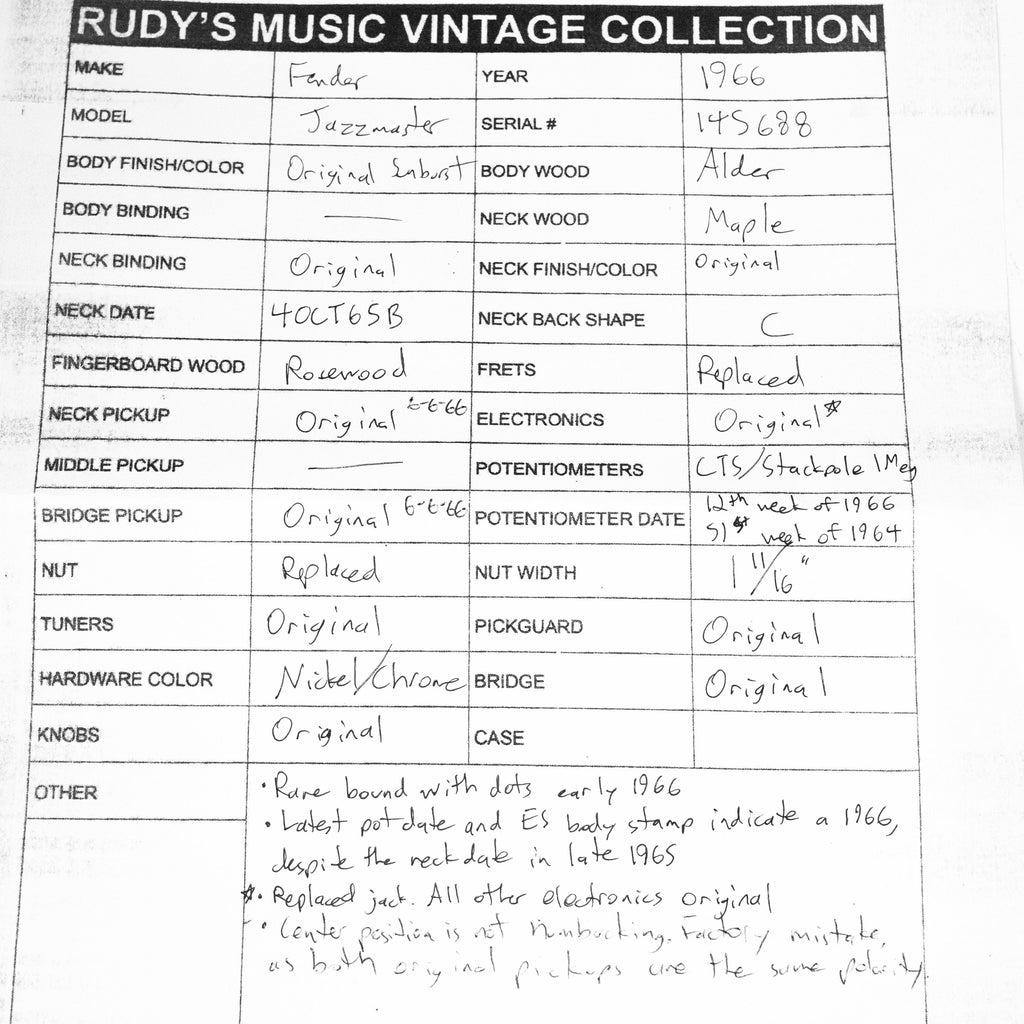 RUDY'S MUSIC VINTAGE COLLECTION
MAKE Fender YEAR 1966
MODEL Jazzmaster SERIAL # 145688
BODY FINISH/COLOR Original Sunburst BODY WOOD Alder
BODY BINDING — NECK WOOD Maple
NECK BINDING Original NECK FINISH/COLOR Original
NECK DATE 4OCT65B NECK BACK SHAPE C
FINGERBOARD WOOD Rosewood FRETS Replaced
NECK PICKUP Original 6-6-66 ELECTRONICS Original*
MIDDLE PICKUP — POTENTIOMETERS CTS/Stackpole 1Meg
BRIDGE PICKUP Original 6-6-66 POTENTIOMETER DATE 12th week of 1966
51st week of 1964
NUT Replaced NUT WIDTH 1 11/16"
TUNERS Original PICKGUARD Original
HARDWARE COLOR Nickel/Chrome BRIDGE Original
KNOBS Original CASE
OTHER
• Rare bound with dots early 1966
• Latest pot date and ES body stamp indicate a 1966,
despite the neck date in late 1965
*• Replaced jack. All other electronics original
• Center position is not Humbucking. Factory mistake,
as both original pickups are the same polarity.